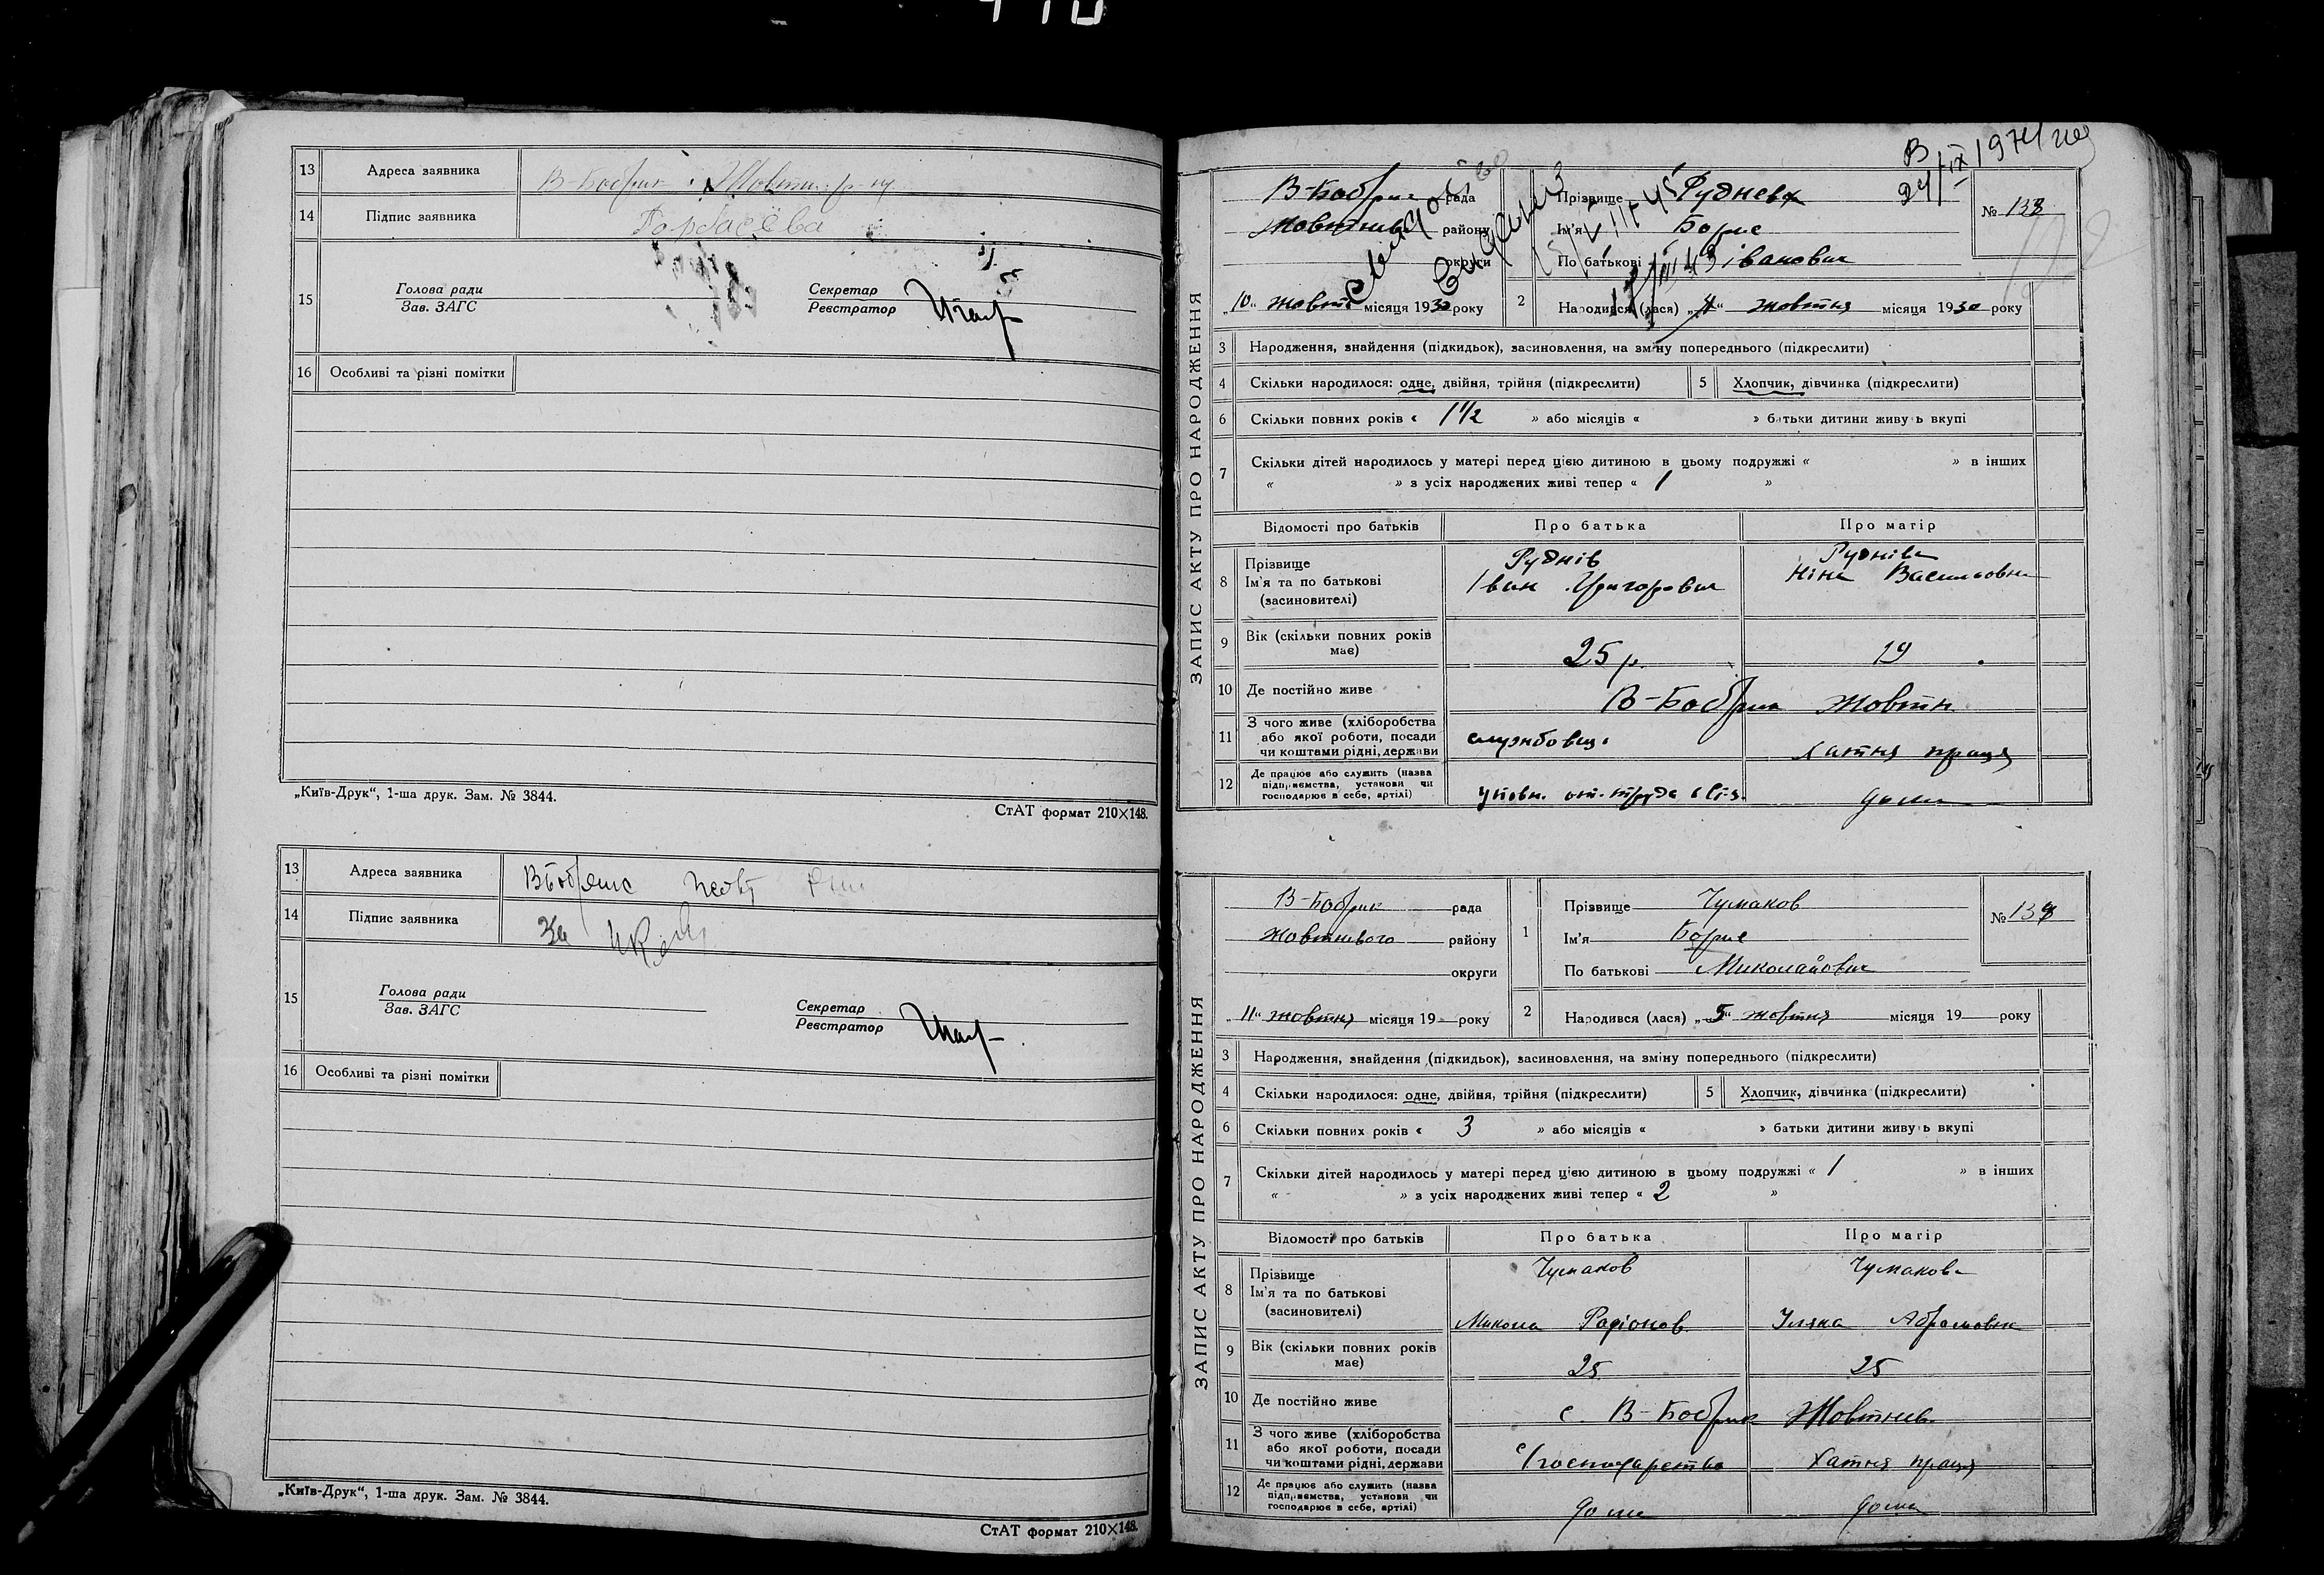 13 Адреса заявника В-Бобрик Жовтн. р-ну
14 Підпис заявника Горбасёва
15 Голова ради
Зав. ЗАГС
Секретар
Реєстратор
16 Особливі та різні помітки
„Київ-Друк“, 1-ша друк. Зам. № 3844.
СтАТ формат 210×148.
13 Адреса заявника
14 Підпис заявника За
15 Голова ради
Зав. ЗАГС
Секретар
Реєстратор
16 Особливі та різні помітки
„Київ-Друк“, 1-ша друк. Зам. № 3844.
СтАТ формат 210×148.
24/IX 1974
ЗАПИС АКТУ ПРО НАРОДЖЕННЯ
В-Бобрик рада
Жовтнев району
округи
„10“ жовт місяця 1930 року
Прізвище Руднєв
Ім'я Борис
По батькові Іванович
№ 138
2 Народився (лася) „4“ жовтня місяця 1930 року
3 Народження, знайдення (підкидьок), засиновлення, на зміну попереднього (підкреслити)
4 Скільки народилося: одне, двійня, трійня (підкреслити) 5 Хлопчик, дівчинка (підкреслити)
6 Скільки повних років « 1 1/2 » або місяців « » батьки дитини живуть вкупі
7 Скільки дітей народилось у матері перед цією дитиною в цьому подружжі « » в інших
« » з усіх народжених живі тепер « 1 »
Відомості про батьків Про батька Про матір
8 Прізвище Руднів Рудніва
Ім'я та по батькові Іван Григорович Ніна Васильовна
(засиновителі)
9 Вік (скільки повних років має) 25 р. 19
10 Де постійно живе В-Бобрик Жовтн.
11 З чого живе (хліборобства або якої роботи, посади чи коштами рідні, держави службовец. хатня праця
12 Де працює або служить (назва підприємства, установи чи господарює в себе, артілі) дома
ЗАПИС АКТУ ПРО НАРОДЖЕННЯ
В-Бобрик рада
Жовтневого району
округи
„11“ жовтня місяця 19 року
1 Прізвище Чумаков
Ім'я Борис
По батькові Миколайович
№ 139
2 Народився (лася) „5“ жовтня місяця 19 року
3 Народження, знайдення (підкидьок), засиновлення, на зміну попереднього (підкреслити)
4 Скільки народилося: одне, двійня, трійня (підкреслити) 5 Хлопчик, дівчинка (підкреслити)
6 Скільки повних років « 3 » або місяців « » батьки дитини живуть вкупі
7 Скільки дітей народилось у матері перед цією дитиною в цьому подружжі « 1 » в інших
« » з усіх народжених живі тепер « 2 »
Відомості про батьків Про батька Про матір
8 Прізвище Чумаков Чумакова
Ім'я та по батькові
(засиновителі) Микола Радіонов. Уляна Абрамовна
9 Вік (скільки повних років має) 25 25
10 Де постійно живе с. В-Бобрик Жовтнев.
11 З чого живе (хліборобства або якої роботи, посади чи коштами рідні, держави с/господарство Хатня праця
12 Де працює або служить (назва підприємства, установи чи господарює в себе, артілі) дома дома